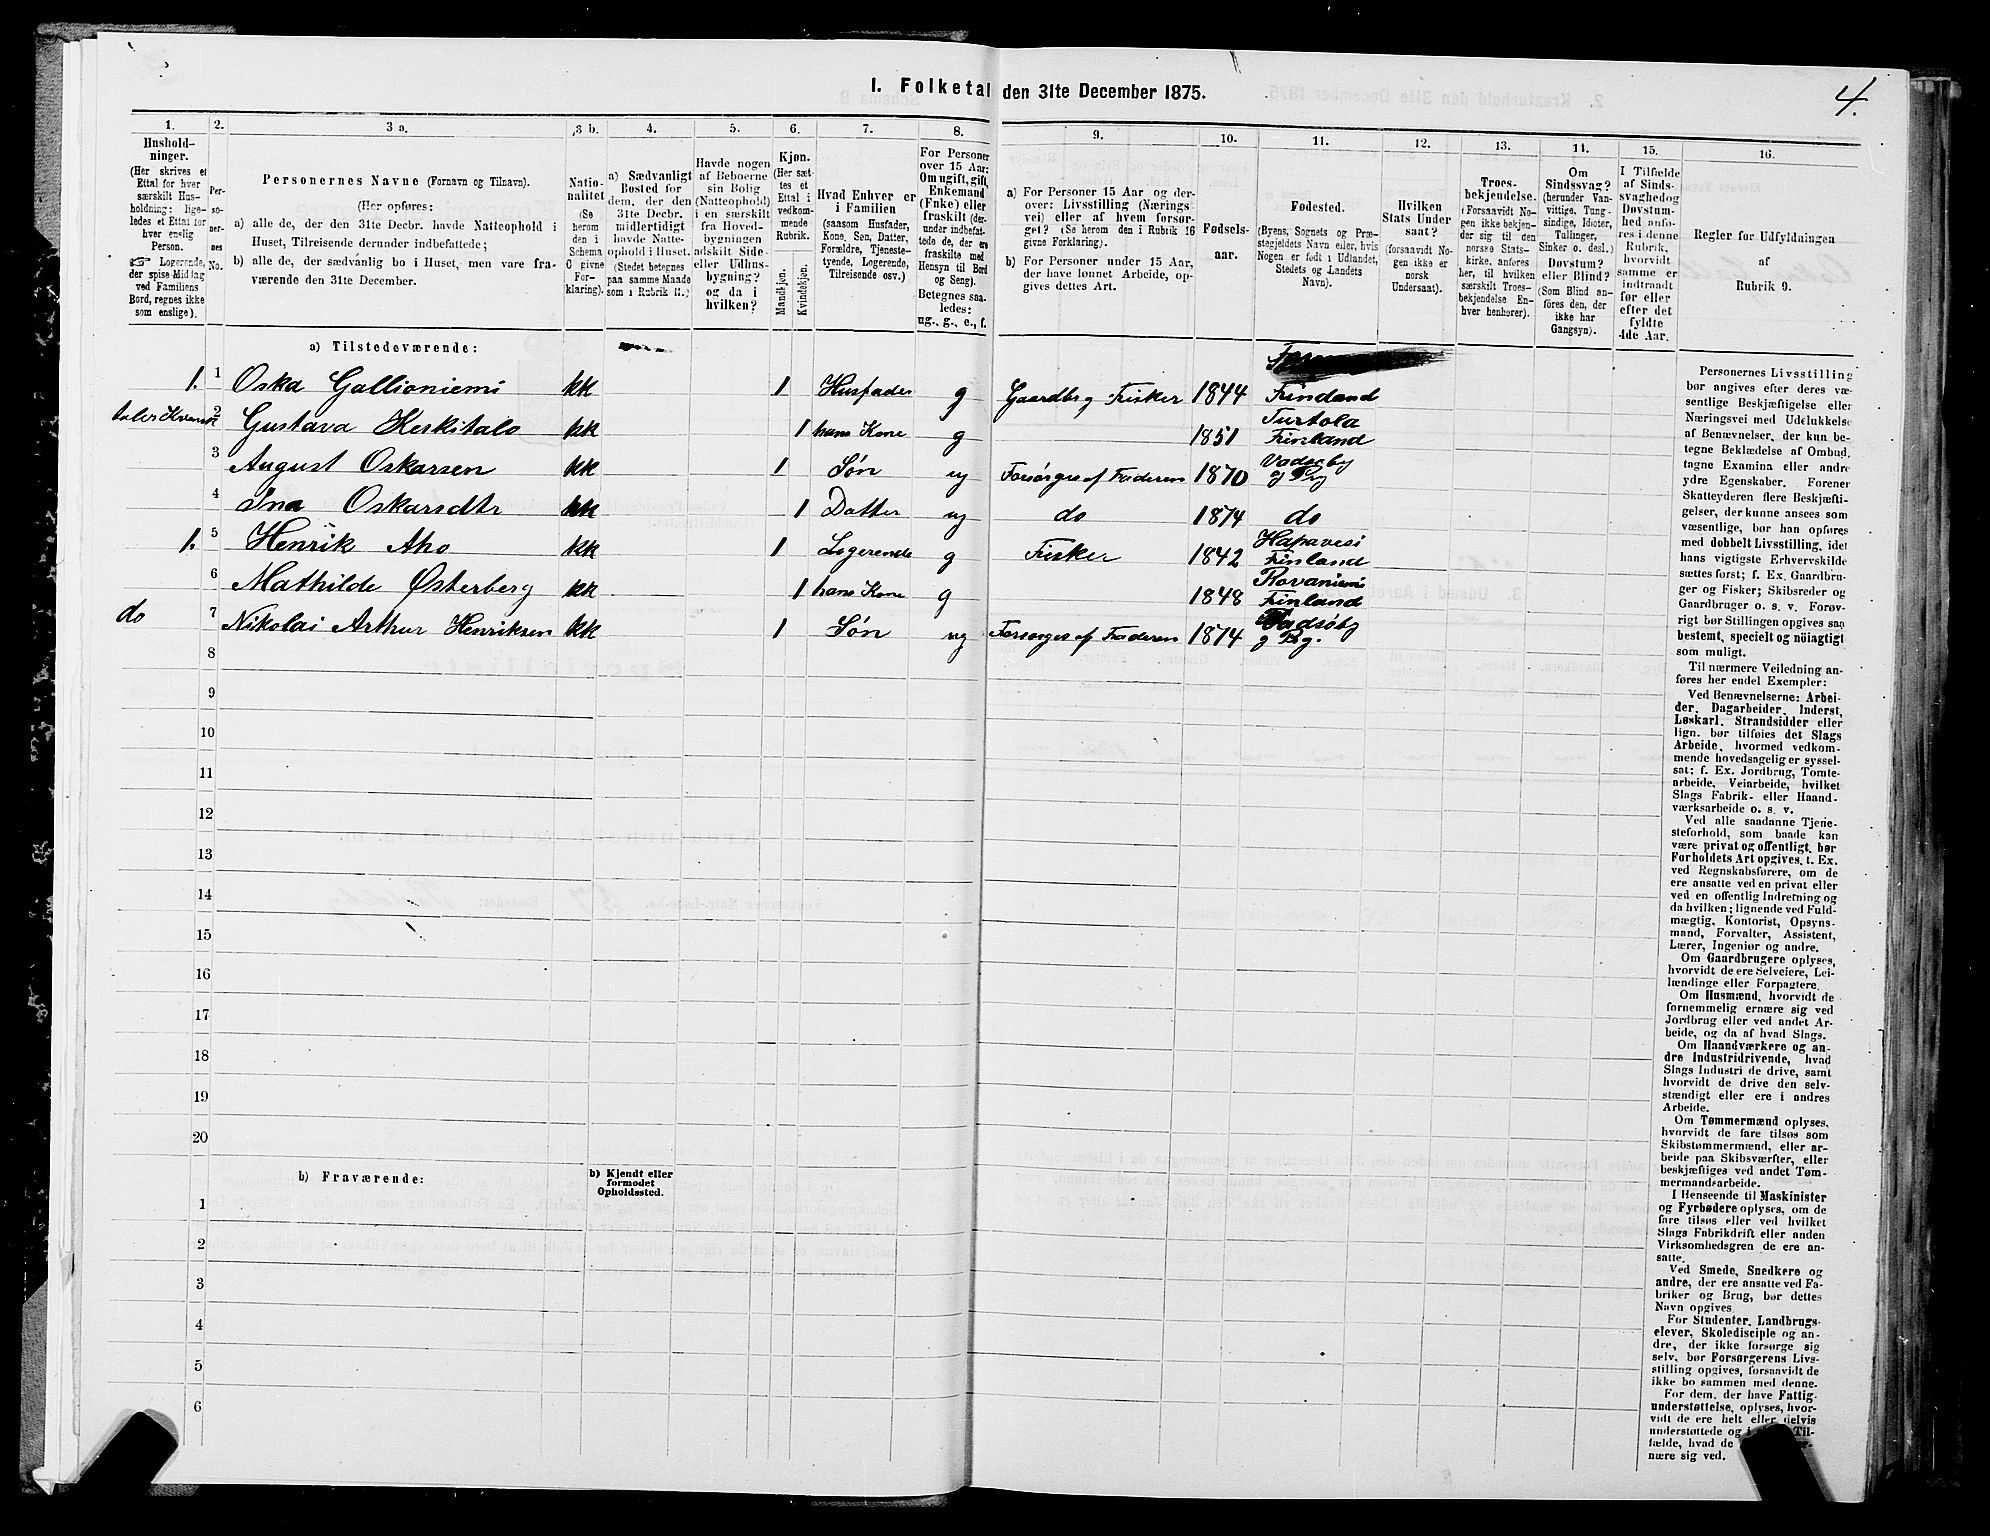 I. Folketal den 31te December 1875.
4.
1.
Hushold-
ninger.
(Her skrives et
Ettal for hver
særskilt Hus-
holdning; lige-
ledes et Ettal for
hver enslig
Person.
☞ Logerende,
der spise Middag
ved Familiens
Bord, regnes ikke
som enslige).
2.
Per-
so-
ner-
nes
No.
3 a.
Personernes Navne (Fornavn og Tilnavn).
(Her opføres:
a) alle de, der den 31te Decbr. havde Natteophold i
Huset, Tilreisende derunder indbefattede;
b) alle de, der sædvanlig bo i Huset, men vare fra-
værende den 31te December.
3 b.
Natio-
nalitet
(Se
herom
den i
Schema
C givne
For-
klaring).
4.
a) Sædvanligt
Bosted for
dem, der den
31te Decbr.
midlertidigt
havde Natte-
ophold i Huset.
(Stedet betegnes
paa samme Maade
som i Rubrik 11.)
5.
Havde nogen
af Beboerne
sin Bolig
(Natteophold)
i en særskilt
fra Hoved-
bygningen
adskilt Side-
eller Udhus-
bygning?
og da i
hvilken?
6.
Kjøn.
(Her sæt-
tes et
Ettal i
vedkom-
mende
Rubrik.
Mandkjøn.
Kvindekjøn.
7.
Hvad Enhver er
i Familien
(saasom Husfader,
Kone, Søn, Datter,
Forældre, Tjeneste-
tyende, Logerende,
Tilreisende osv.)
8.
For Personer
over 15 Aar:
Om ugift, gift,
Enkemand
(Enke) eller
fraskilt (der-
under indbefat-
tede de, der ere
fraskilte med
Hensyn til Bord
og Seng).
Betegnes saa-
ledes:
ug., g., e., f.
9.
a) For Personer 15 Aar og der-
over: Livsstilling (Nærings
vei) eller af hvem forsør-
get? (Se herom den i Rubrik 16
givne Forklaring).
b) For Personer under 15 Aar,
der have lønnet Arbeide, op-
gives dettes Art.
10.
Fødsels-
aar.
11.
Fødested.
(Byens, Sognets og Præ-
stegjeldets Navn eller, hvis
Nogen er født i Udlandet,
Stedets og Landets
Navn).
12.
Hvilken
Stats Under
saat?
(forsaavidt No-
gen ikke er
norsk
Undersaat).
13.
Troes-
bekjendelse.
(Forsaavidt No-
gen ikke bekjen-
der sig til den
norske Stats-
kirke, anføres
her, til hvilken
særskilt Troes-
bekjendelse En-
hver henhører).
14.
Om
Sindssvag?
(herunder Van-
vittige, Tung-
sindige, Idioter,
Tullinger,
Sinker o. desl.)
Døvstum?
eller Blind?
(Som Blind an-
føres den, der
ikke har
Gangsyn).
15.
I Tilfælde
af Sinds-
svaghed og
Døvstum-
hed anfø-
res i denne
Rubrik,
hvorvidt
samme er
indtraadt
før eller
efter det
fyldte
4de Aar.
16.
Regler for Udfyldningen
af
Rubrik 9.
a) Tilstedeværende:
1. 1 Oska Gallioniemi kk 1 Husfader g Gaardbr g Fisker 1844 Finland
taler Kvensk 2 Gustava Heskitalo kk 1 hans Kone g 1851 Turtola Finland
3 August Oskarsen kk 1 Søn ug Forsørges af Faderen 1870 Vadsøby g Prg
4 Ina Oskarsdtr kk 1 Datter ug do 1874 do
1. 5 Henrik Aho kk 1 Logerende g Fisker 1842 Hapavesi Finland
6 Mathilde Østerberg kk 1 hans Kone g 1848 Rovaniemi Finland
do 7 Nikolai Arthur Henriksen kk 1 Søn ug Forsørges af Faderen 1874 Vadsøby g Prg.
8
9
10
11
12
13
14
15
16
17
18
19
20
b) Fraværende:
b) Kjendt eller
formodet
Opholdssted.
1
2
3
4
5
6
Personernes Livsstilling
bør angives efter deres væ-
sentlige Beskjæftigelse eller
Næringsvei med Udelukkelse
af Benævnelser, der kun be-
tegne Beklædelse af Ombud,
tagne Examina eller andre
ydre Egenskaber. Forener
Skatteyderen flere Beskjæfti-
gelser, der kunne ansees som
væsentlige, bør han opføres
med dobbelt Livsstilling, idet
hans vigtigste Erhvervskilde
sættes først; f. Ex. Gaardbru-
ger og Fisker; Skibsreder og
Gaardbruger o. s. v. Forøv-
rigt bør Stillingen opgives saa
bestemt, specielt og nöiagtigt
som muligt.
Til nærmere Veiledning an-
føres her endel Exempler:
Ved Benævnelserne: Arbei-
der, Dagarbeider, Inderst,
Løskarl, Strandsidder eller
lign. bør tilføies det Slags
Arbeide, hvormed vedkom-
mende hovedsagelig er syssel-
sat; f. Ex. Jordbrug, Tomte-
arbeide, Veiarbeide, hvilket
Slags Fabrik- eller Haand-
værksarbeide o. s. v.
Ved alle saadanne Tjene-
steforhold, som baade kan
være privat og offentligt, bør
Forholdets Art opgives, t. Ex.
ved Regnskabsførere, om de
ere ansatte ved en privat eller
ved en offentlig Indretning og
da hvilken; lignende ved Fuld-
mægtig, Kontorist, Opsyns-
mand, Forvalter, Assistent,
Lærer, Ingeniør og andre.
Om Gaardbrugere oplyses,
hvorvidt de ere Selveiere, Lei-
lændinge eller Forpagtere.
Om Husmænd, hvorvidt de
fornemmelig ernære sig ved
Jordbrug eller ved andet Ar-
beide, og da af hvad Slags.
Om Haandværkere og an-
dre Industridrivende, hvad
Slags Industri de drive, samt
hvorvidt de drive den selv-
stændigt eller ere i andres
Arbeide.
Om Tømmermænd oplyses,
hvorvidt de fare tilsøs som
Skibstømmermænd, eller ar-
beide paa Skibsværfter, eller
beskjæftiges ved andet Tøm-
mermandsarbeide.
I Henseende til Maskinister
og Fyrbødere oplyses, om de
fare tilsøs eller ved hvilket
Slags Fabrikdrift eller anden
Virksomhedsgren de ere an-
satte.
Ved Smede, Snedkere og
andre, der ere ansatte ved Fa-
briker og Brug, bør dettes
Navn opgives.
For Studenter, Landbrugs-
elever, Skoledisciple og an-
dre, der ikke forsørge sig
selv, bør Forsørgerens Livs-
stilling opgives, forsaavidt de
ikke bo sammen med denne.
For dem, der have Fattig-
understøttelse, oplyses, hvor-
vidt de ere helt eller delvis
understøttede og i Til-
fælde, hvad de
nære sig ved.